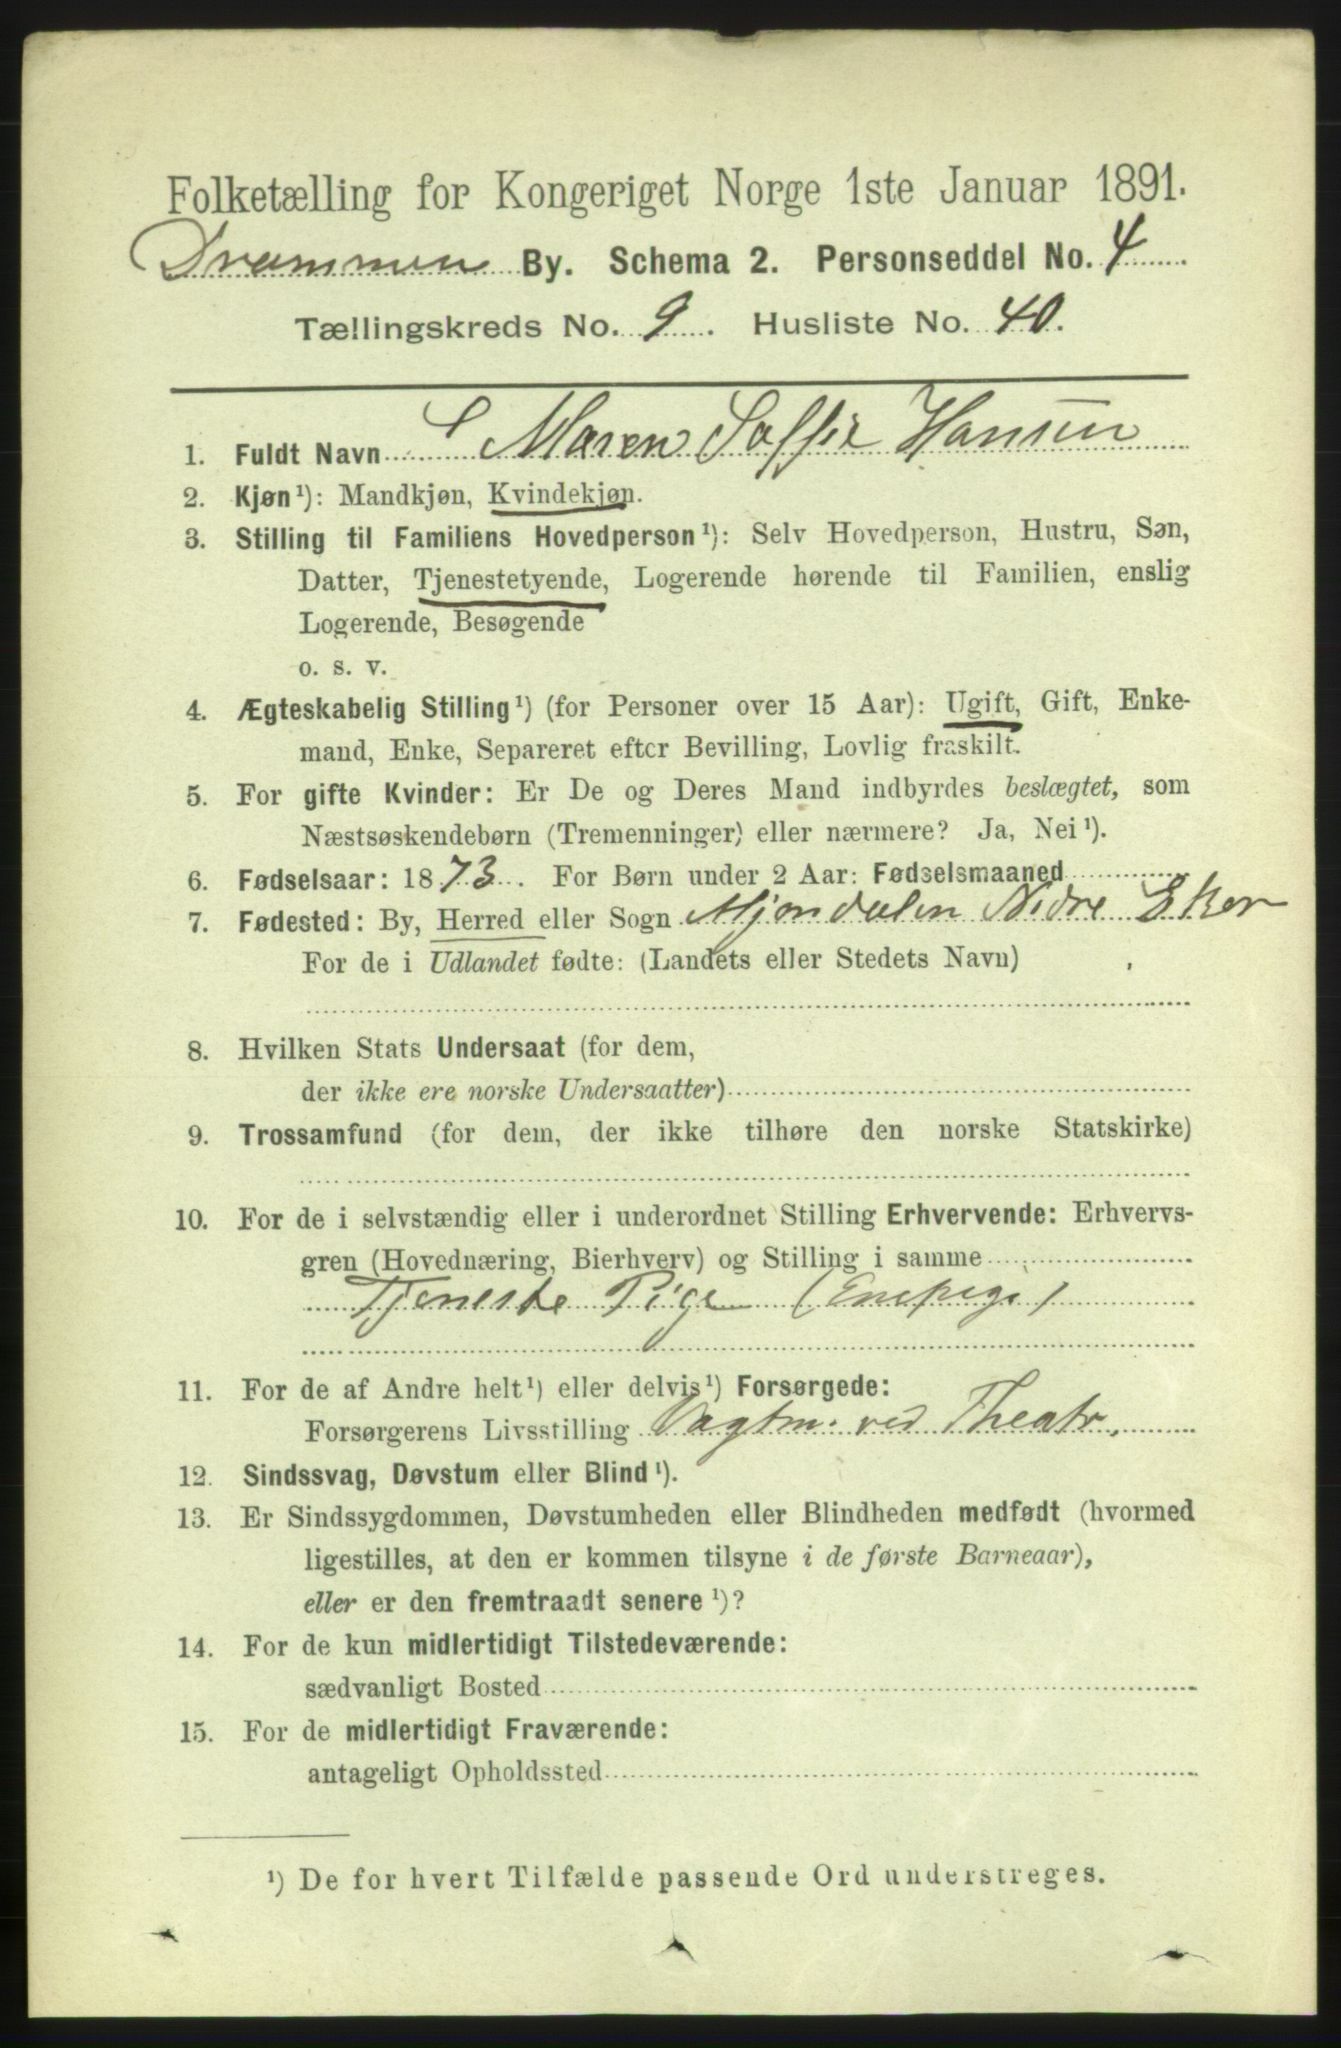 Folketælling for Kongeriget Norge 1ste Januar 1891.
Drammen By. Schema 2. Personseddel No. 4
Tællingskreds No. 9. Husliste No. 40.
1. Fuldt Navn Maren Soffie Hansen
2. Kjøn¹): Mandkjøn, Kvindekjøn.
3. Stilling til Familiens Hovedperson¹): Selv Hovedperson, Hustru, Søn,
Datter, Tjenestetyende, Logerende hørende til Familien, enslig
Logerende, Besøgende
o. s. v.
4. Ægteskabelig Stilling¹) (for Personer over 15 Aar): Ugift, Gift, Enke-
mand, Enke, Separeret efter Bevilling, Lovlig fraskilt.
5. For gifte Kvinder: Er De og Deres Mand indbyrdes beslægtet, som
Næstsøskendebørn (Tremenninger) eller nærmere? Ja, Nei¹).
6. Fødselsaar: 1873. For Børn under 2 Aar: Fødselsmaaned
7. Fødested: By, Herred eller Sogn Mjøndalen Nedre Eker
For de i Udlandet fødte: (Landets eller Stedets Navn)
8. Hvilken Stats Undersaat (for dem,
der ikke ere norske Undersaatter)
9. Trossamfund (for dem, der ikke tilhøre den norske Statskirke)
10. For de i selvstændig eller i underordnet Stilling Erhvervende: Erhvervs-
gren (Hovednæring, Bierhverv) og Stilling i samme
Tjeneste Pige (Enepige)
11. For de af Andre helt¹) eller delvis¹) Forsørgede:
Forsørgerens Livsstilling Vagtm. ved Theatr.
12. Sindssvag, Døvstum eller Blind¹).
13. Er Sindssygdommen, Døvstumheden eller Blindheden medfødt (hvormed
ligestilles, at den er kommen tilsyne i de første Barneaar),
eller er den fremtraadt senere¹)?
14. For de kun midlertidigt Tilstedeværende:
sædvanligt Bosted
15. For de midlertidigt Fraværende:
antageligt Opholdssted
¹) De for hvert Tilfælde passende Ord understreges.